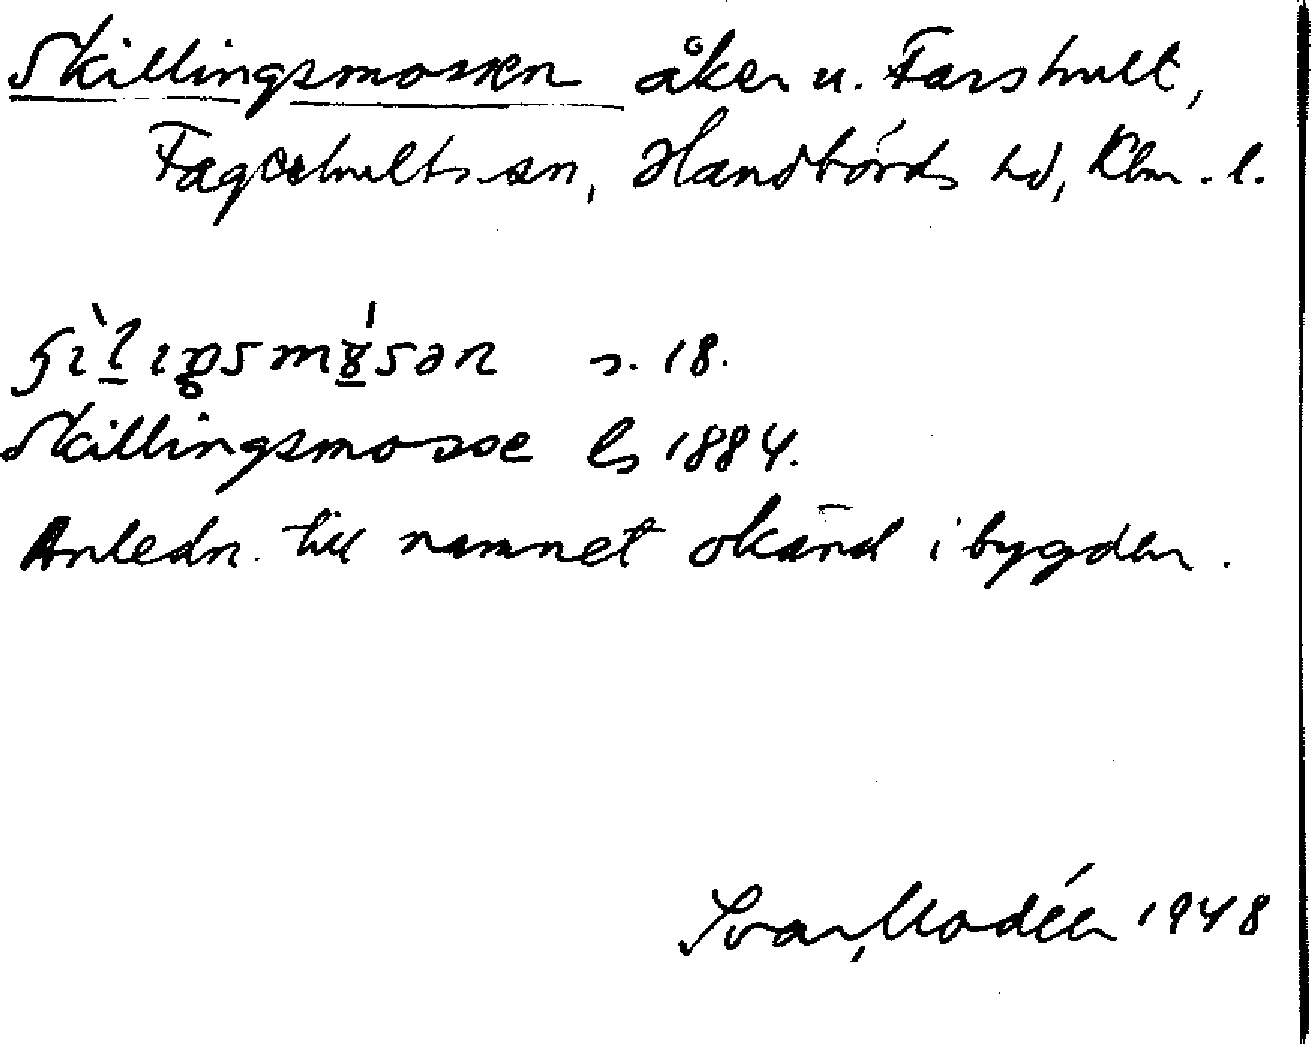 Skillingsmossen åker u. Farshult,
Fagerhults sn, Handbörds hd, Klm. l.
s. 18.
Skillingsmosse Ls 1884.
Anledn. till namnet okänd i bygden.
Ivar Modéer 1948